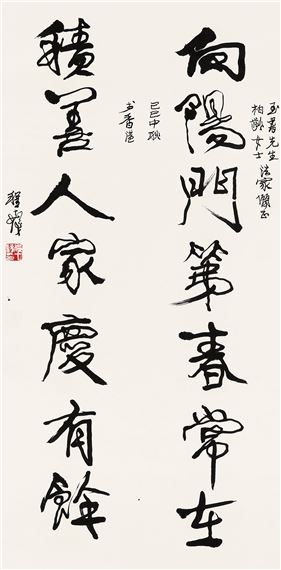 玉書先生
柏齡女士
法家儷正
向陽門第春常在
己巳中秋
於香港
積善人家慶有餘